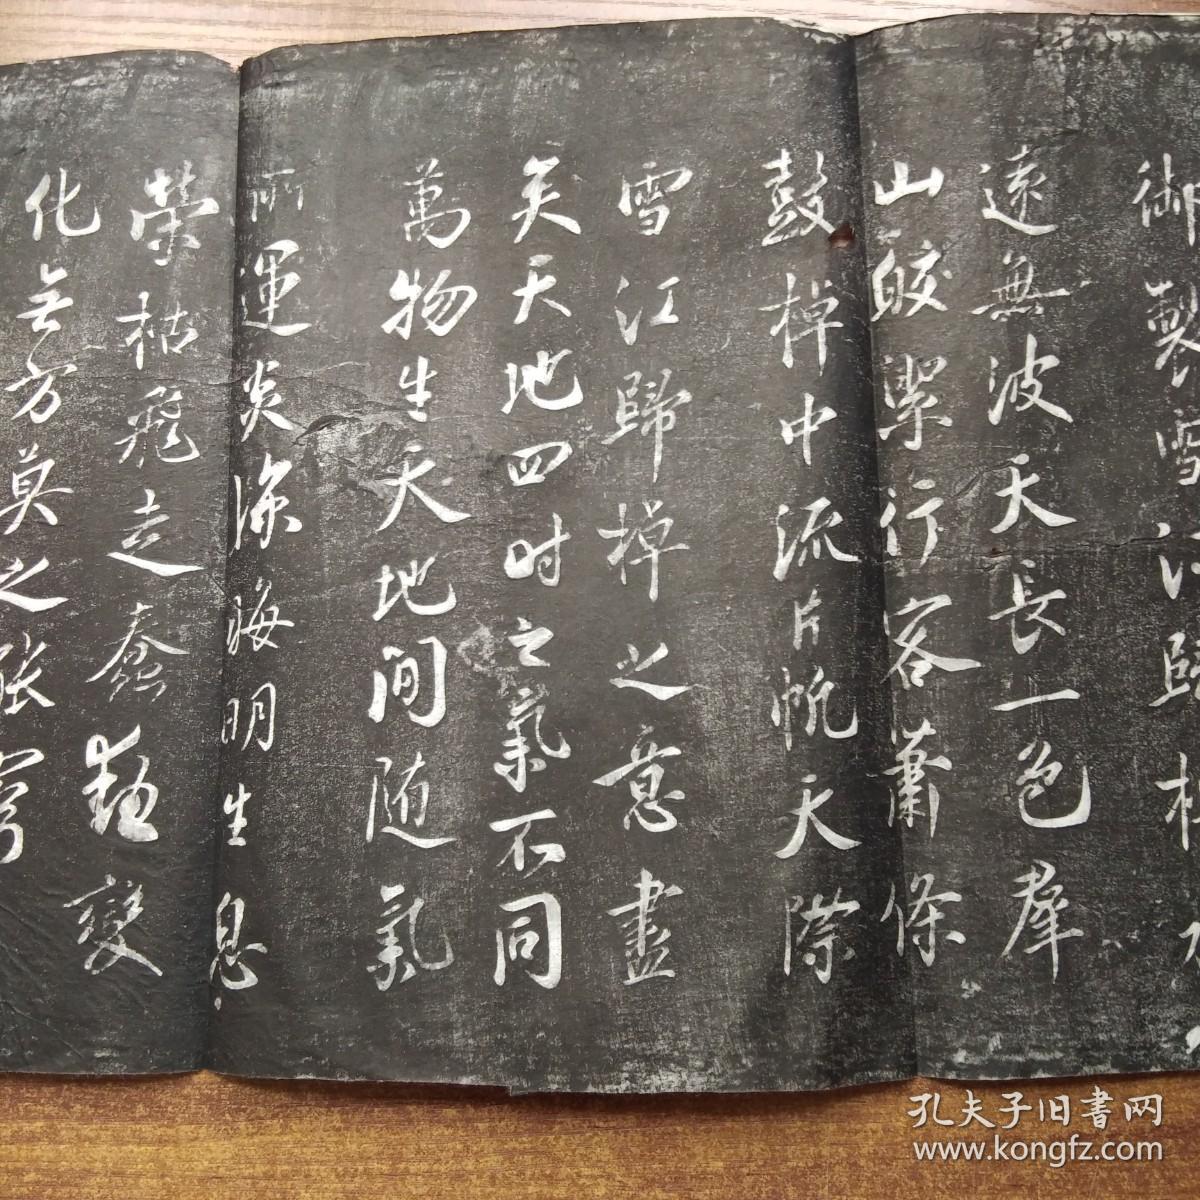 御製雪江歸棹水
遠無波天長一色羣
山皎潔行客蕭條
鼓棹中流片帆天際
雪江歸棹之意盡
矣天地四時之氣不同
萬物生天地間随氣
所運炎涼晦明生息
榮枯飛走蠢動變
化无方莫之能窮
孔夫子旧書网
www.kongfz.com